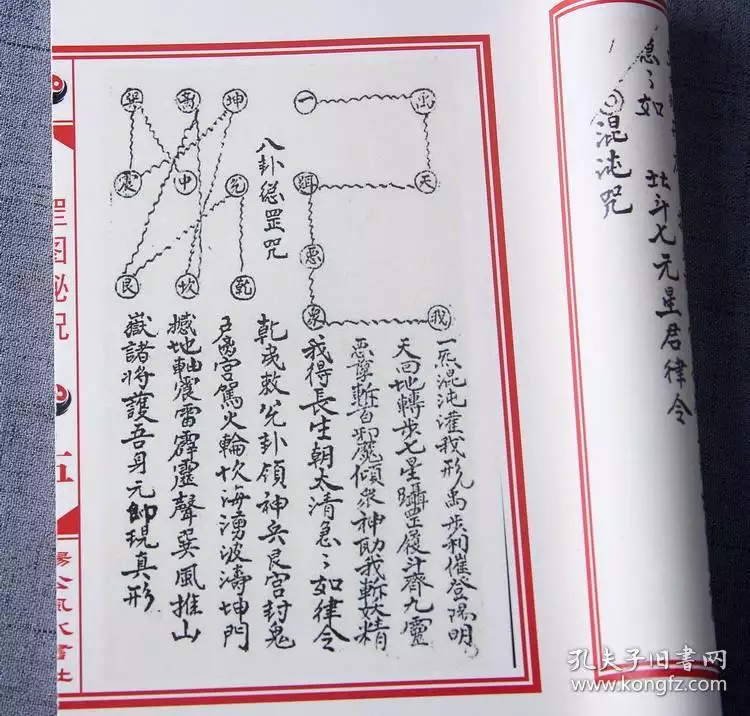 急々如 北斗七元星君律令
混沌咒
禹
一
天
我
躡
惡
眾
一炁混沌灌我形禹步相催登陽明
天回地轉步七星躡罡履斗齊九靈
惡孽斬首邪魔傾眾神助我斬妖精
我得長生朝太清急々如律令
八卦總罡咒
坤
离
巽
兌
中
震
乾
坎
艮
敕兌卦領神兵艮宮封鬼
宮駕火輪坎海湧波濤坤門
撼地軸震雷霹靂聲巽風推山
嶽諸將護吾身元帥現真形
罡图秘咒
五
孔夫子旧书网
www.kongfz.com